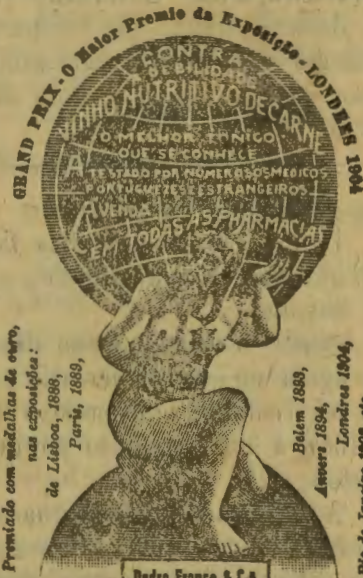 GRAND PRIX-O Maior Premio da Exposição-LONDRES 1904
CONTRA
A DEBILIDADE
VINHO NUTRITIVO DE CARNE
O MELHOR TONICO
QUE SE CONHECE
ATESTADO POR NUMEROSOS MEDICOS
PORTUGUEZES E ESTRANGEIROS
Á VENDA
EM TODAS AS PHARMACIAS
Premiado com medalhas de ouro,
nas exposições:
de Lisboa, 1888,
Paris, 1889,
Belem 1893,
Anvers 1894,
Londres 1904,
Pedro Franco & C.a